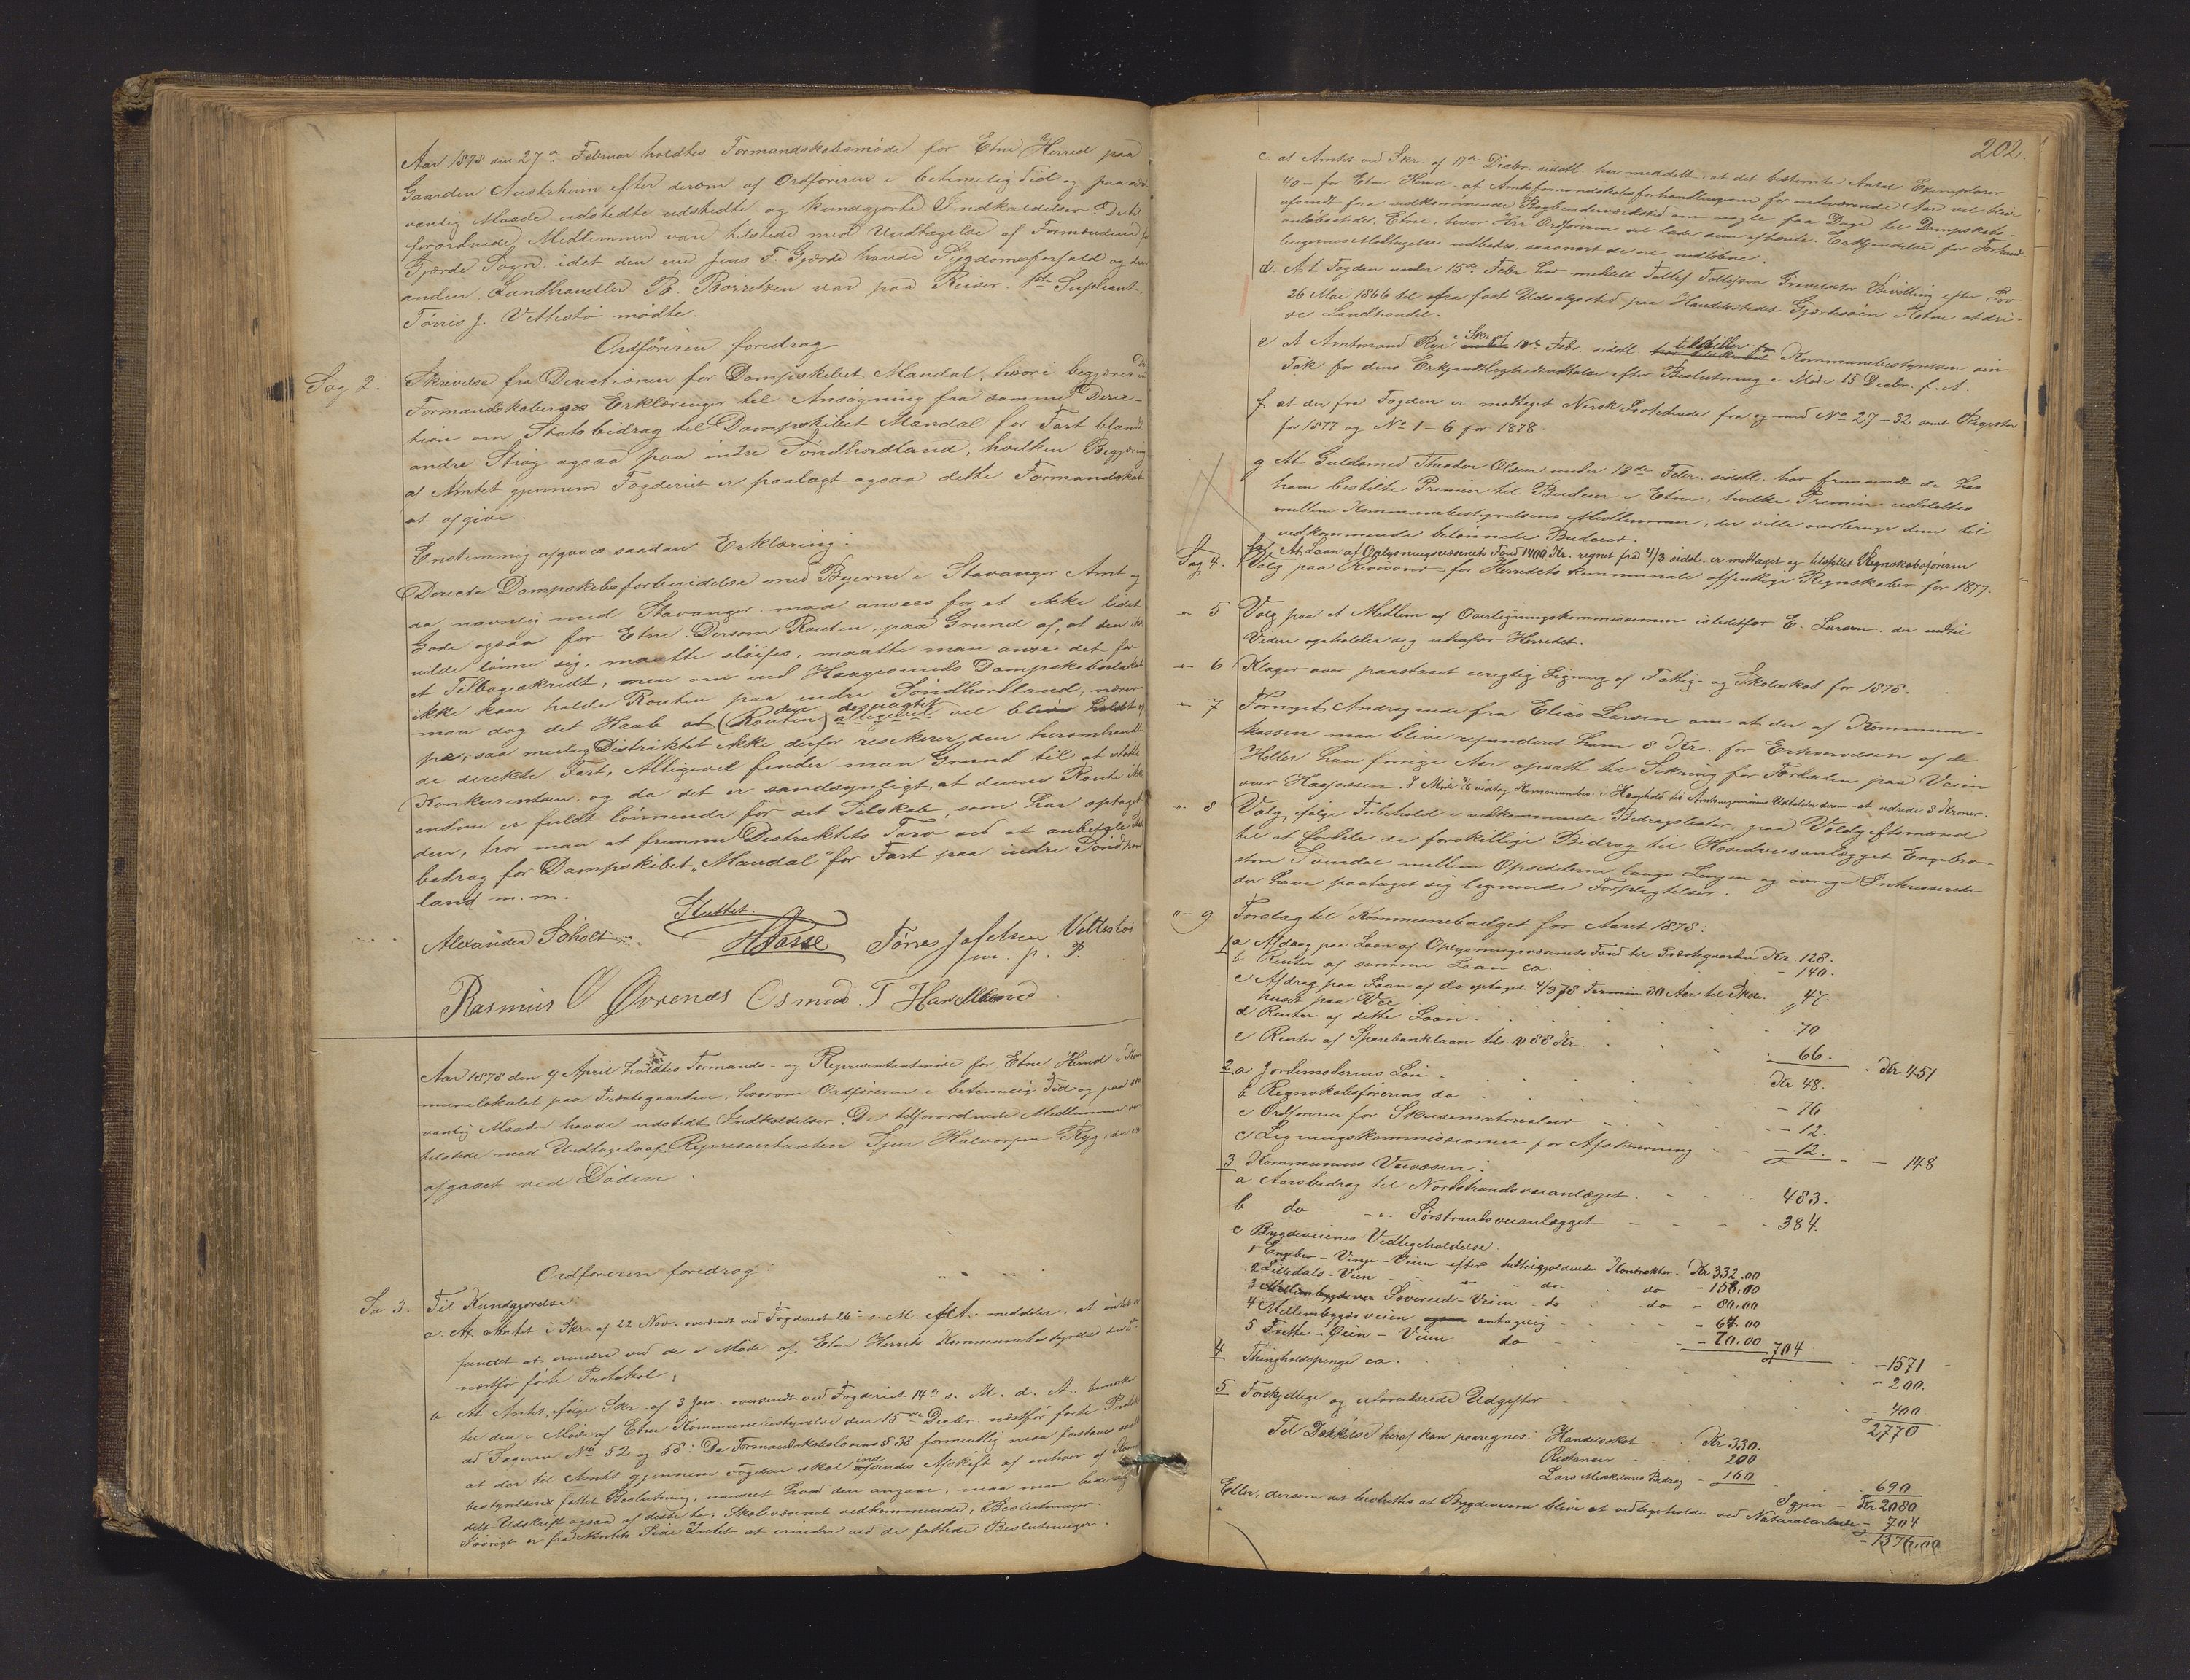 Aar 1878 den 27de Februar holdtes Formandskabsmøde for Etne Herred paa
Gaarden Austrheim efter derom af Ordføreren i betimelig Tid og paa
vanlig Maade udstedte udstedte og kundgjorte Indkaldelser. De til-
forordnede Medlemmer vare tilstede med Undtagelse af Formændene
Gjerde Sogn, idet den ene Jens F. Gjerde havde Sygdomsforfald og den
anden Landhandler B. Børretzen var paa Reiser. 1ste Supleant,
Tørris J. Vettestø mødte.
Ordføreren foredrog
Sag 2. Skrivelse fra Directionen for Dampskibet Mandal, hvori begjæres
Formandskabernes Erklæringer til Ansøgning fra samme Direc-
tion om Statsbidrag til Dampskibet Mandal for Fart blandt
andre Strøg ogsaa paa indre Søndhordland, hvilken Begjæring
af Amtet gjennem Fogderiet er paalagt ogsaa dette Formandskab
at afgive.
Enstemmig afgaves saadan Erklæring:
Directe Dampskibsforbindelse med Byerne i Stavanger Amt og
da navnlig med Stavanger maa ansees for et ikke lidet
Gode ogsaa for Etne. Dersom Routen, paa Grund af, at den ikke
vilde lønne sig, maatte sløifes, maatte man anse det for
et Tilbageskridt, men om end Haugesunds Dampskibsselskab
ikke kan holde Routen paa indre Søndhordland, nærer
man dog det Haab at (Routen) den desuagtet alligevel vil blive holdt
pe, saa meulig Distriktet ikke derfor resikerer den heromhandle
de direkte Fart. Alligevel finder man Grund til at støtte
Konkurentsen, og da det er sandsynligt, at denne Route ikke
endnu er fuldt lønnende for det Selskab, som har optaget
den, tror man at fremme Distriktets Tarv ved at anbefale
bedrag for Dampskibet "Mandal" for Fart paa indre Søndhord
land m. m.
Sluttet.
Alexander Scholt HVasse Tørres Jofelsen Vettestø
m. p. P.
Rasmus O Øvrenæs Osmund T Haveland
Aar 1878 den 9 April holdtes Formands- og Representantmøde for Etne Herred i Kom
munelokalet paa Præstegaarden, hvorom Ordføreren i betimelig Tid og paa
vanlig Maade havde udstedt Indkaldelser. De tilforordnede Medlemmer
tilstede med Undtagelse af Representanten Sjur Halvorsen Ryg, der er
afgaaet ved Døden.
Ordføreren foredrog
Sa 3. Til Kundgjørelse:
a. At Amtet i Skr. af 22 Nov. oversendt ved Fogderiet 26de s. M. f.A. meddeler, at intet er
fundet at erindre ved de i Møde af Etne Herreds Kommunebestyrelse
næstfør førte Protokol;
b At Amtet ifølge Skr. af 3 Jan. oversendt ved Fogderiet 14de s. M. d. A. bemærker
til den i Møde af Etne Kommunebestyrelse den 15de Decbr. næstfør førte Protokol
ad Sagerne No 52 og 58: Da Formandskabslovens § 38 formentlig maa forstaaes saaledes
at der til Amtet gjennem Fogden skal indsendes Afskrift af enhver af
bestyrelsens fattet Beslutning, uanseet hvad den angaar, maa man bede
delt Udskrift ogsaa af disse to, Skolevæsenet vedkommende, Beslutninger.
Iøvrigt er fra Amtets Side Intet at erindre ved de fattede Beslutninger.
202.
c. at Amtet ved Skr. af 17de Decbr. sidstl. har meddelt, at det bestemte Antal Exemplarer
40 – for Etne Herred af Amtsformandskabsforhandlingerne for indeværende Aar vil blive
afsendt fra vedkommende Bogbinderværksted om nogle faa Dage til Dampskibs-
anløbsstedet Etne, hvor Hr. Ordføreren vil lade dem afhente. Erkjendelse for Forhand-
lingernes Modtagelse udbedes, saasnart de ere indløbne.
d. At Fogden under 15de Febr. har meddelt Tollef Tollefsen Grindestør Bevilling efter Lov
26 Mai 1866 til fra fast Udsalgssted paa Handelsstedet Gjerdesøen i Etne at dri-
ve Landhandel.
e at Amtmand Rye i Skr. af 18de Febr. sidstl. tilstiller Kommunebestyrelsen sin
Tak for dens Erkjendtlighedsudtalelse efter Beslutning i Møde 15 Decbr. f. A.
f at der fra Fogden er modtaget Norsk Lovtidende fra og med No 27–32 samt Register
for 1877 og No 1–6 for 1878.
g At Guldsmed Theodor Olsen under 13de Febr. sidstl. har fremsendt de hos
ham bestilte Premier til Budeier i Etne, hvilke Premier uddeltes
mellem Kommunebestyrelsens Medlemmer, der ville overbringe dem til
vedkommende belønnede Budeier.
h. At Laan af Oplysningsvæsenets Fond 1400 Kr. regnet fra 4/3 sidstl. er modtaget og tilstillet Regnskabsføreren
Sag 4. Valg paa Revisorer for Herredets kommunale offentlige Regnskaber for 1877.
"– 5 Valg paa et Medlem af Overligningskommissionen istedetfor E. Larsen, der indtil
Videre opholder sig udenfor Herredet.
"– 6 Klager over paastaaet urigtig Ligning af Fattig- og Skoleskat for 1878.
"– 7 Fornyet Andragende fra Elias Larsen om at der af Kommune-
kassen maa blive refunderet ham 8 Kr. for Erhvervelsen af de
Heller han forrige Aar opsatte til Sikring for Færdselen paa Veien
over Haafossen. I Møde 9/6 vedtog Kommunebes. i Henhold til Amtsingeniørens Udtalelse derom at udrede 8 Kroner.
"– 8 Valg, ifølge Forbehold i vedkommende Bidragslister, paa Voldgiftsmænd
til at fordele de forskillige Bidrag til Hovedveianlægget Engebro–
store Svendal mellem Opsidderne langs Linjen og øvrige Interesserede
der have paataget sig lignende Forpligtelser.
"– 9 Forslag til Kommunebudget for Aaret 1878:
1 a Afdrag paa Laan af Oplysningsvæsenets Fond til Præstegaarden Kr. 128.
b Renter af samme Laan ca. – 140.
c Afdrag paa Laan af do optaget 4/3 78 Termin 30 Aar til Skole- " 47.
huset paa Vee
d Renter af dette Laan . 70
e Renter af Sparebanklaan tils. 1088 Kr. 66. Kr 451
2 a Jordemoderens Løn Kr 48.
b Regnskabsførerens do – 76
c Ordføreren for Skrivematerialier – 12.
d Ligningskommissionen for Afskrivning – 12. – 148
3 Kommunens Veivæsen:
a Aarsbidrag til Nordstrandsveianlægget 483.
b do –"– Sørstrandsveianlægget – 384.
c Bygdeveienes Vedligeholdelse.
1 Engebro – Vinje – Veien efter hidtilgjældende Kontrakter Kr 332.00
2 Lilledals – Veien " do do – 158.00
3 Sævereid – Veien do do – 80.00
4 Mellembygdsveien antagelig – 64.00
5 Frette – Øien – Veien do – 70.00 704 – 1571
4 Thingholdspenge ca. – 200.
5 Forskjellige og uforudseede Udgifter – 400
2770
Til Dækkelse heraf kan paaregnes: Handelsskat Kr 330.
Restancer 200
Lars Bidrag – 160 690
Igjen – Kr 2080
Eller, dersom det besluttes at Bygdeveiene blive at vedligeholde ved Naturalarbeide – 704
– 1376.00